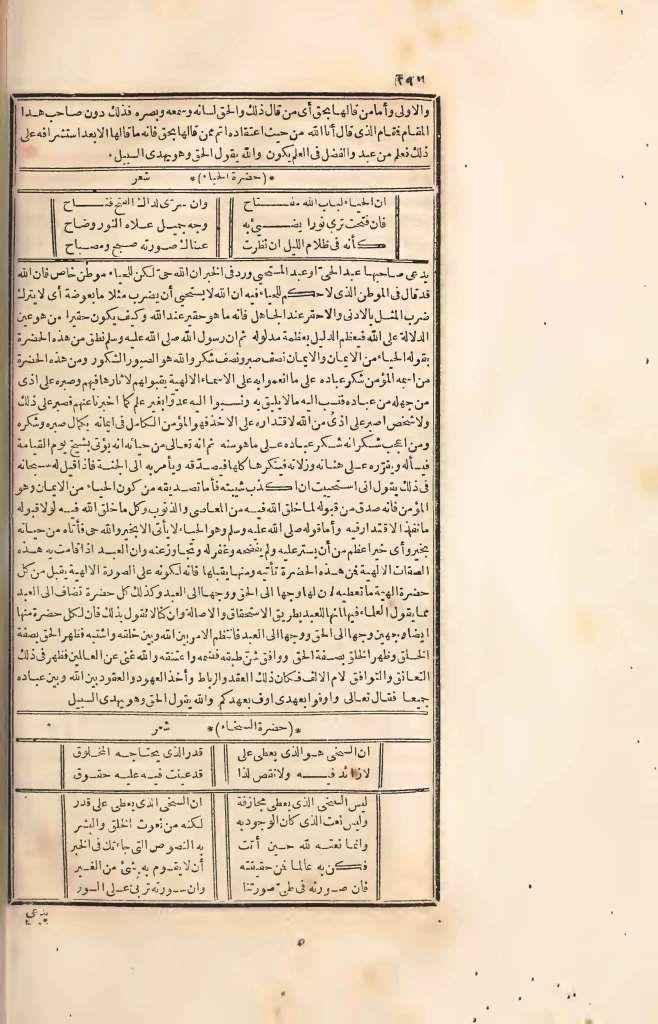 ٢٩٦
والاولى وأما من قالها بحق أى من قال ذلك والحق لسانه وسمعه وبصره فذلك دون صاحب هذا
المقام فمقام الذى قال أنا الله من حيث اعتقاده اتم ممن قالها بحق فانه ما قالها الا بعد استشرافه على
ذلك فعلم من عبد والفضل فى العلم يكون والله يقول الحق وهو يهدى السبيل
*(حضرة الحياء)* شعر
ان الحياء لباب الله مفتاح وان سرى لذاك الفتح فتاح
فان فتحت ترى نورا يضىء به وجه جميل علاه النور وضاح
كأنه فى ظلام الليل ان نظرت عيناك صورته صبح ومصباح
يدعى صاحبها عبد الحيى أو عبد المستحيى ورد فى الخبر ان الله حيى لكن للحياء موطن خاص فان الله
قد قال فى الموطن الذى لا حكم للحياء فيه ان الله لا يستحيى أن يضرب مثلا ما بعوضة أى لا يترك
ضرب المثل بالادنى والاحقر عند الجاهل فانه ما هو حقير عند الله وكيف يكون حقيرا من هو عين
الدلالة على الله فيعظم الدليل بعظمة مدلوله ثم ان رسول الله صلى الله عليه وسلم نطق من هذه الحضرة
بقوله الحياء من الايمان والايمان نصف صبر ونصف شكر والله هو الصبور الشكور ومن هذه الحضرة
من اسمه المؤمن شكر عباده على ما انعموا به على الاسماء الالهية بقبولهم لاثارها فيهم وصبر على اذى
من جهله من عباده فنسب اليه ما لا يليق به ونسبوا اليه عدوا بغير علم كما اخبرنا عنهم فصبر على ذلك
ولا شخص اصبر على اذى من الله لاقتداره على الاخذ فهو المؤمن الكامل فى ايمانه بكمال صبره وشكره
ومن اعجب شكرانه شكر عباده على ما هو منه ثم انه تعالى من حيائه انه يؤتى بشيخ يوم القيامة
فيسأله ويقرره على هناته وزلاته فينكرها كلها فيصدقه ويأمر به الى الجنة فاذا قيل له سبحانه
فى ذلك يقول انى استحييت ان اكذب شيبته فأما تصديقه من كون الحياء من الايمان وهو
المؤمن فانه صدق من قبوله لما خلق الله فيه من المعاصى والذنوب وكل ما خلق الله فيه لولا قبوله
ما نفذ الاقتدار فيه وأما قوله صلى الله عليه وسلم وهو الحياء لا يأتى الا بخير والله حيى فأتاه من حيائه
بخير وأى خير اعظم من أن يستر عليه ولم يفضحه وغفر له وتجاوز عنه وان العبد اذا قامت به هذه
الصفات الالهية فمن هذه الحضرة تأتيه ومنها يقبلها فانه لكونه على الصورة الالهية يقبل من كل
حضرة الهية ما تعطيه لان لها وجها الى الحق ووجها الى العبد وكذلك كل حضرة تضاف الى العبد
مما يقول العلماء فيها انها للعبد بطريق الاستحقاق والاصالة وان كنا لا نقول بذلك فان لكل حضرة منها
ايضا وجهين وجها الى الحق ووجها الى العبد فانتظم الامر بين الله وبين خلقه واشتبه فظهر الحق بصفة
الخلق وظهر الخلق بصفة الحق ووافق شن طبقه فضمه واعتنقه والله غنى عن العالمين فظهر فى ذلك
التعانق والتوافق لام الالف فكان ذلك العقد والرباط وأخذ العهود والعقود بين الله وبين عباده
جميعا فقال تعالى واوفوا بعهدى اوف بعهدكم والله يقول الحق وهو يهدى السبيل
*(حضرة السخاء)* شعر
ان السخى هو الذى يعطى على قدر الذى يحتاجه المخلوق
لا زائد فيه ولا نقص لذا قد عينت فيه عليه حقوق
ليس السخى الذى يعطى مجازفة ان السخى الذى يعطى على قدر
وليس نعت الذى كان الوجود به لكنه من نعوت الخلق والبشر
وانما نعته لله حين أتت به النصوص التى جاءتك فى الخبر
فكن به عالما من حقيقته أن لا يقوم به شئ من الغير
فان صورته فى طى صورتنا وان سورته تربى على السور
يدعى